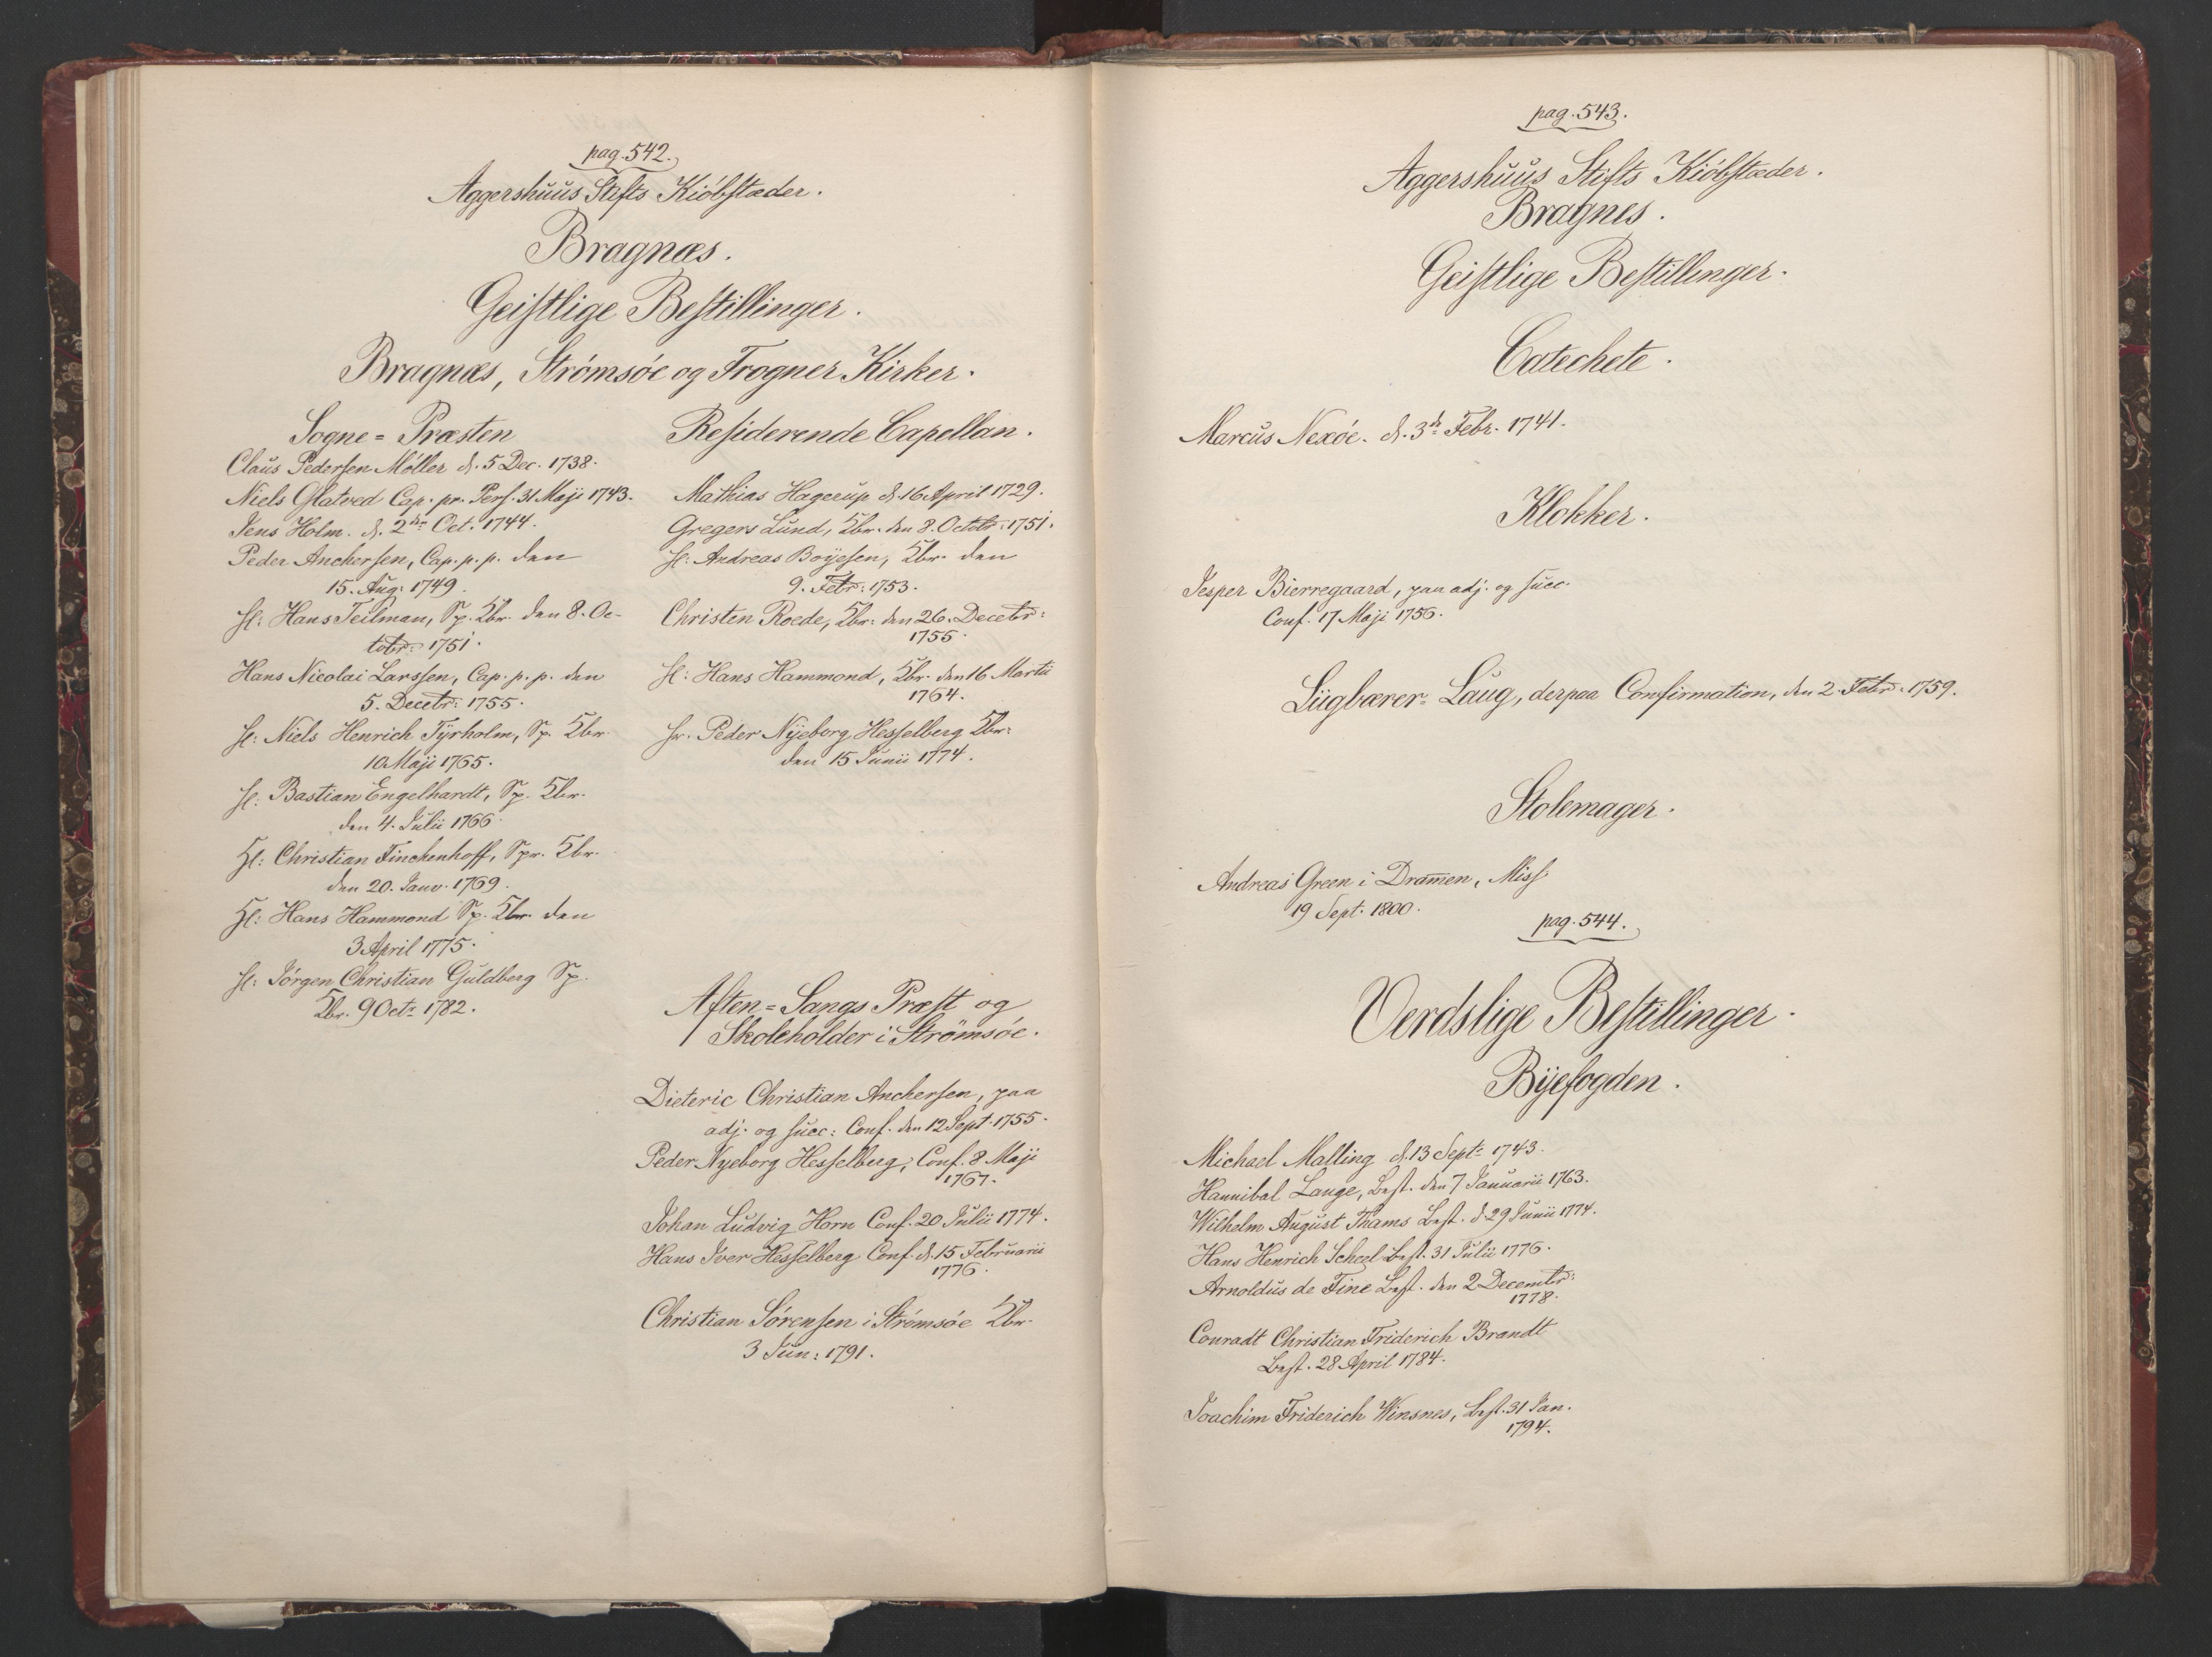 pag. 542.
Aggershuus Stifts Kiöbstæder.
Bragnæs.
Geistlige Bestillinger.
Bragnæs, Strömsöe og Frogner Kirker.
Sogne = Præsten
Claus Pedersen Möller d. 5 Dec. 1738.
Niels Glatved Cap. pr. Pers. 31 Maji 1743.
Jens Holm. d. 2den Oct. 1744.
Peder Anchersen, Cap. p. p. den
15. Aug: 1749.
Hans Teilman, Sp. Kbr. den 8. Oc-
tobr: 1751.
Hans Nicolai Larssen, Cap. p. p. den
5. Decebr: 1755.
Hr: Niels Henrich Tyrholm, Sp. Kbr.
10 Maji 1765.
Hr: Bastian Engelhardt, Sp. Kbr.
den 4. Julii 1766.
Hr: Christian Finckenhoff, Spr. Kbr.
den 20. Janv. 1769.
Hr: Hans Hammond Sp. Kbr. den
3 April 1775.
Hr: Jörgen Christian Guldberg Sp.
Kbr. 9 Octr 1782.
Residerende Capellan.
Mathias Hagerup d. 16 April 1729.
Gregers Lund, Kbr. den 8. Octobr: 1751.
Hr: Andreas Boyesen, Kbr. den
9. Febr: 1753.
Christen Roede, Kbr: den 26. Decebr:
1755.
Hr: Hans Hammond, Kbr. den 16 Martii
1764.
Hr. Peder Nyeborg Hesselberg Kbr:
den 15 Junii 1774.
Aften = Sangs Præst og
Skoleholder i Strömsöe.
Dieteric Christian Anchersen, paa
adj. og succ: Conf. den 12 Sept. 1755.
Peder Nyeborg Hesselberg, Conf. 8 Maji
1767.
Johan Ludvig Horn Conf. 20 Julii 1774.
Hans Iver Hesselberg Conf. d. 15 Februarii
1776.
Christian Sörensen i Strömsöe Kbr.
3 Jun: 1791.
pag. 543.
Aggershuus Stifts Kiöbstæder.
Bragnes.
Geistlige Bestillinger.
Catechete.
Marcus Nexöe. d. 3d Febr. 1741.
Klokker.
Jesper Bierregaard, paa adj. og succ.
Conf. 17 Maji 1756.
Liigbærer = Laug, derpaa Confirmation, den 2. Febr. 1759.
Stolemager.
Andreas Green i Dram̄en, Miss
19 Sept. 1800.
pag. 544.
Verdslige Bestillinger.
Byefogden.
Michael Malling d. 13 Septr 1743.
Hannibal Lange, Best. den 7 Januarii 1763.
Wilhelm August Thams Best. d. 29 Junii 1774.
Hans Henrich Scheel Best. 31 Julii 1776.
Arnoldus de Fine Best. den 2 Decembr:
1778.
Conradt Christian Friderich Brandt
Best. 28 April 1784.
Joachim Friderich Winsnes, Best. 31 Jan.
1794.